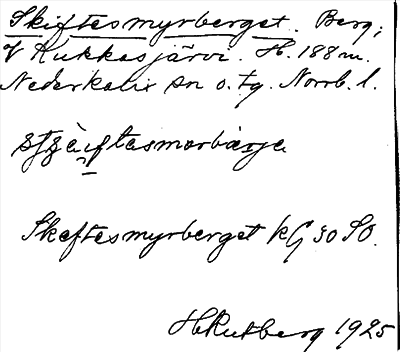 Skiftesmyrberget. Berg;
V Kukkasjärvi. H. 188 m.
Nederkalix sn o. tg. Norrb. l.
Skeftesmyrberget kG 30 SO.
H Rutberg 1925